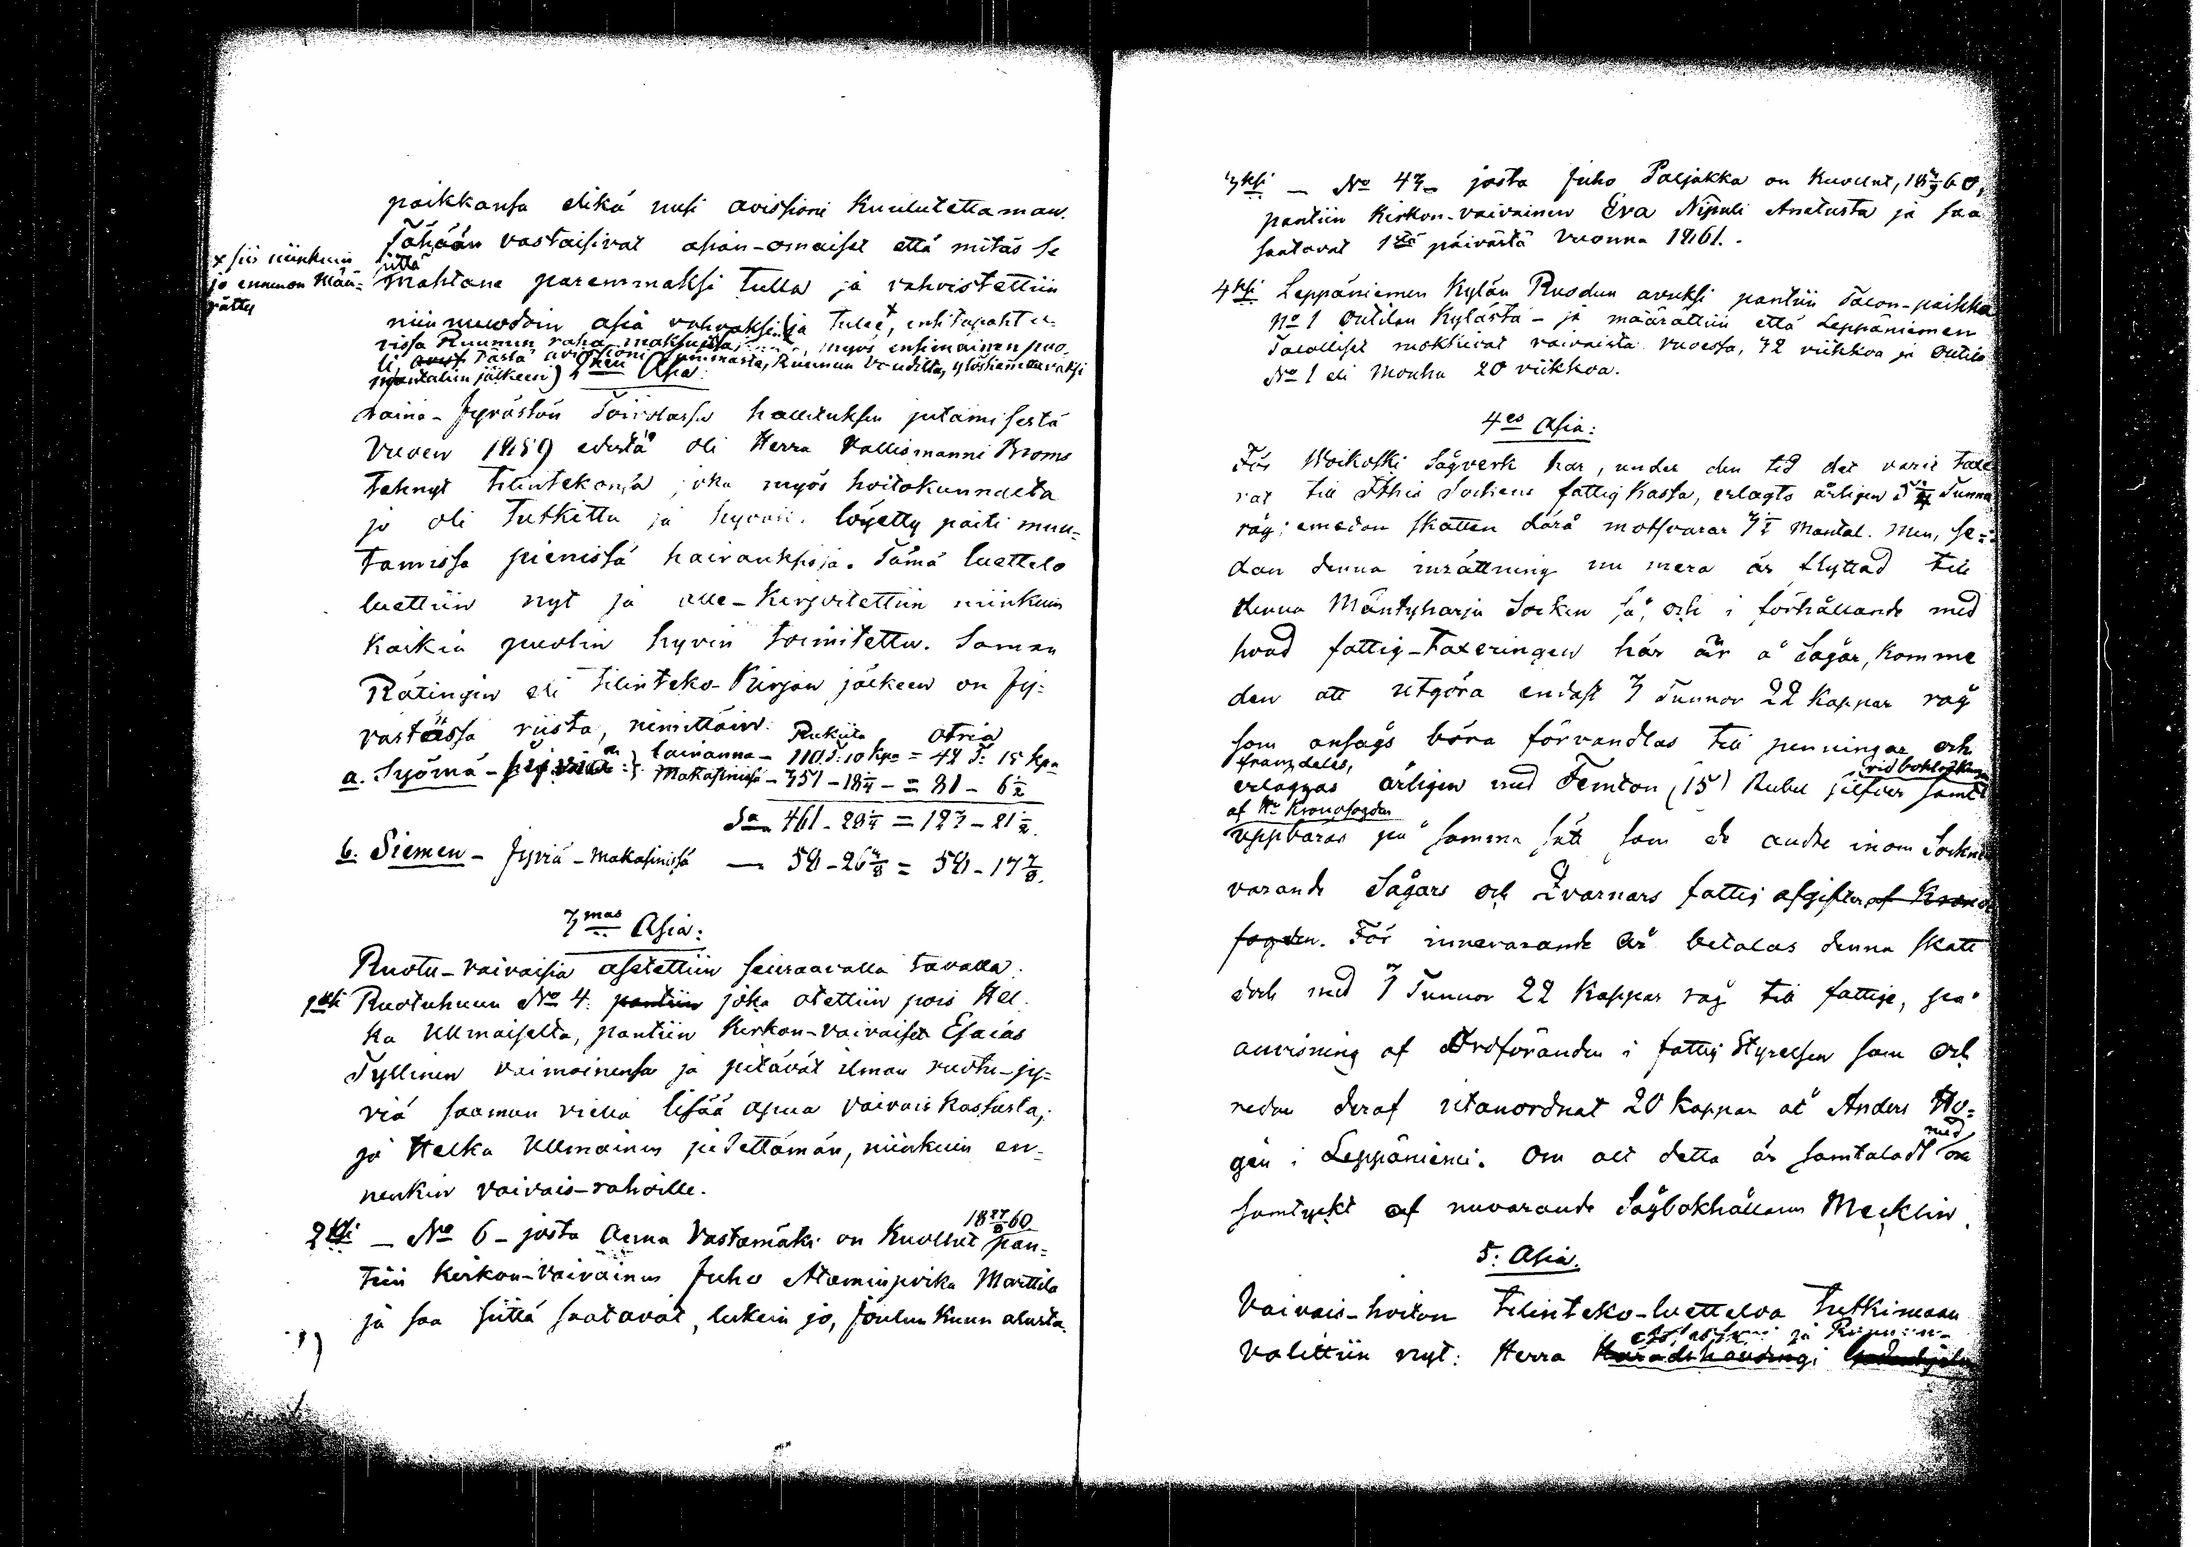 paikkansa elikä uusi avisioni kuulutettaman.
Tähään vastaisivat asian-omaiset että mitäs se
x sii niinkuin
jo ennenon Mää-
rätty
siitä
mahtane paremmaksi tulla ja vahvistettiin
niin muodoin asia vahvaksi ja tulee x,
vissa Ruunun raha maksuissa, myös ensimäinen puo-
li tästä Ruunun Voudilta, ylöskannettavaksi
mantalin jälkeen) 2nen Asia:
Laina-Jyvästön Toirolassa hallituksen pitämisestä
Vuoen 1859 edestä oli Herra Vallismanni Broms
tehnyt tilintekonsa, joka myös hoitokunnalta
jo oli tutkittu ja hyvin löyetty paiti muu-
tamissa pienissä hairauksisa. Tämä luettelo
luettiin nyt ja alle-kirjoitettiin niinkuin
kaikin puolin hyvin toimitettu. Saman
Rätingin eli tilinteko-Kirjan jälkeen on Jy-
västössä riista, nimittäin: Rukiita otria
a. Syömä - lainanna - 110 T: 10 kpa = 42 T: 15 kpa
Makasinissa - 351 - 18 1/4 - = 81 - 6 1/2
Sa 461 - 28 1/4 = 123 - 21 1/2.
b. Siemen - Jyviä - Makasinissa — 58 - 26 4/8 = 58 - 17 7/8.
3mas Asia:
Ruotu-vaivaisia asetettiin seuraavalla tavalla.
1ksi Ruotuhuun No 4: pantiin joka otettiin pois Hel-
ka Ullmaiselta, pantiin Kirkon-vaivaiset Esaias
Tyllinen vaimoinensa ja pitävät ilman ruotu-jy-
viä saaman vielä lisää apua vaivais kassasta,
ja Helka Ullmainen pidettämän, niinkuin en-
nenkin vaivais-rahoille.
2ksi — No 6 - josta Anna Vastamäki on kuollut 18 27/9 60 pan-
tiin Kirkon-vaivainen Juho Ataminpoika Marttila
ja saa siitä saatavat, lukein jo, Joulun kuun alusta.
3ksi — No 43 - josta Juho Paljakka on kuollut, 18 60,
pantiin Kirkon-vaivainen Eva Nipuli Anatusta ja saa
saatavat 1stä päivästä Vuonna 1861.
4ksi Leppäniemen Kylän Ruodun avuksi pantiin Talon-paikka
No 1 Outilan Kylästä - ja määrättiin että Leppäniemen
Talolliset ruokkivat vaivaista vuoessa, 32 viikkoa ja Outila
No 1 eli Mouhu 20 viikkoa.
4es Asia:
För Woikoski Sågverk har, under den tid det varit taxe-
rat till Ithis Sockens fattig Kassa, erlagts årligen 5 Tunna
råg; emedan skatten därå motsvarar Mantal. Men, se-
dan denna inrättning nu mera är flyttad till
denna Mäntyharju Socken så, och i förhållande med
hvad fattig-taxeringen här är å Sågar, komme
den att utgöra endast 3 Tunnor 22 Kappar råg
som ansågs böra förvandlas till penningar och
framdeles, vid bokslutningen
erläggas årligen med Femton (15) Rubel silfver samt
af Hr Kronofogden
uppbäras på samma sätt som de andre inom Socknen
varande Sågars och Qvarnars fattig afgifter af Krono-
fogden. För innevarande år betalas denna skatt
doch med 3 Tunnor 22 Kappar råg till fattige, på
anvisning af Ordföranden i fattig Styrelsen som och
redan deraf utanordnat 20 Kappar åt Anders Ho-
gén i Leppäniemi. Om alt detta är samtaladt med och
samtyckt af nuvarande Sågbokhållaren Mecklin.
5: Asia.
Vaivais-hoiton tilinteko-luetteloa tutkimaan
valittiin nyt: Herra Häradshöfdingi